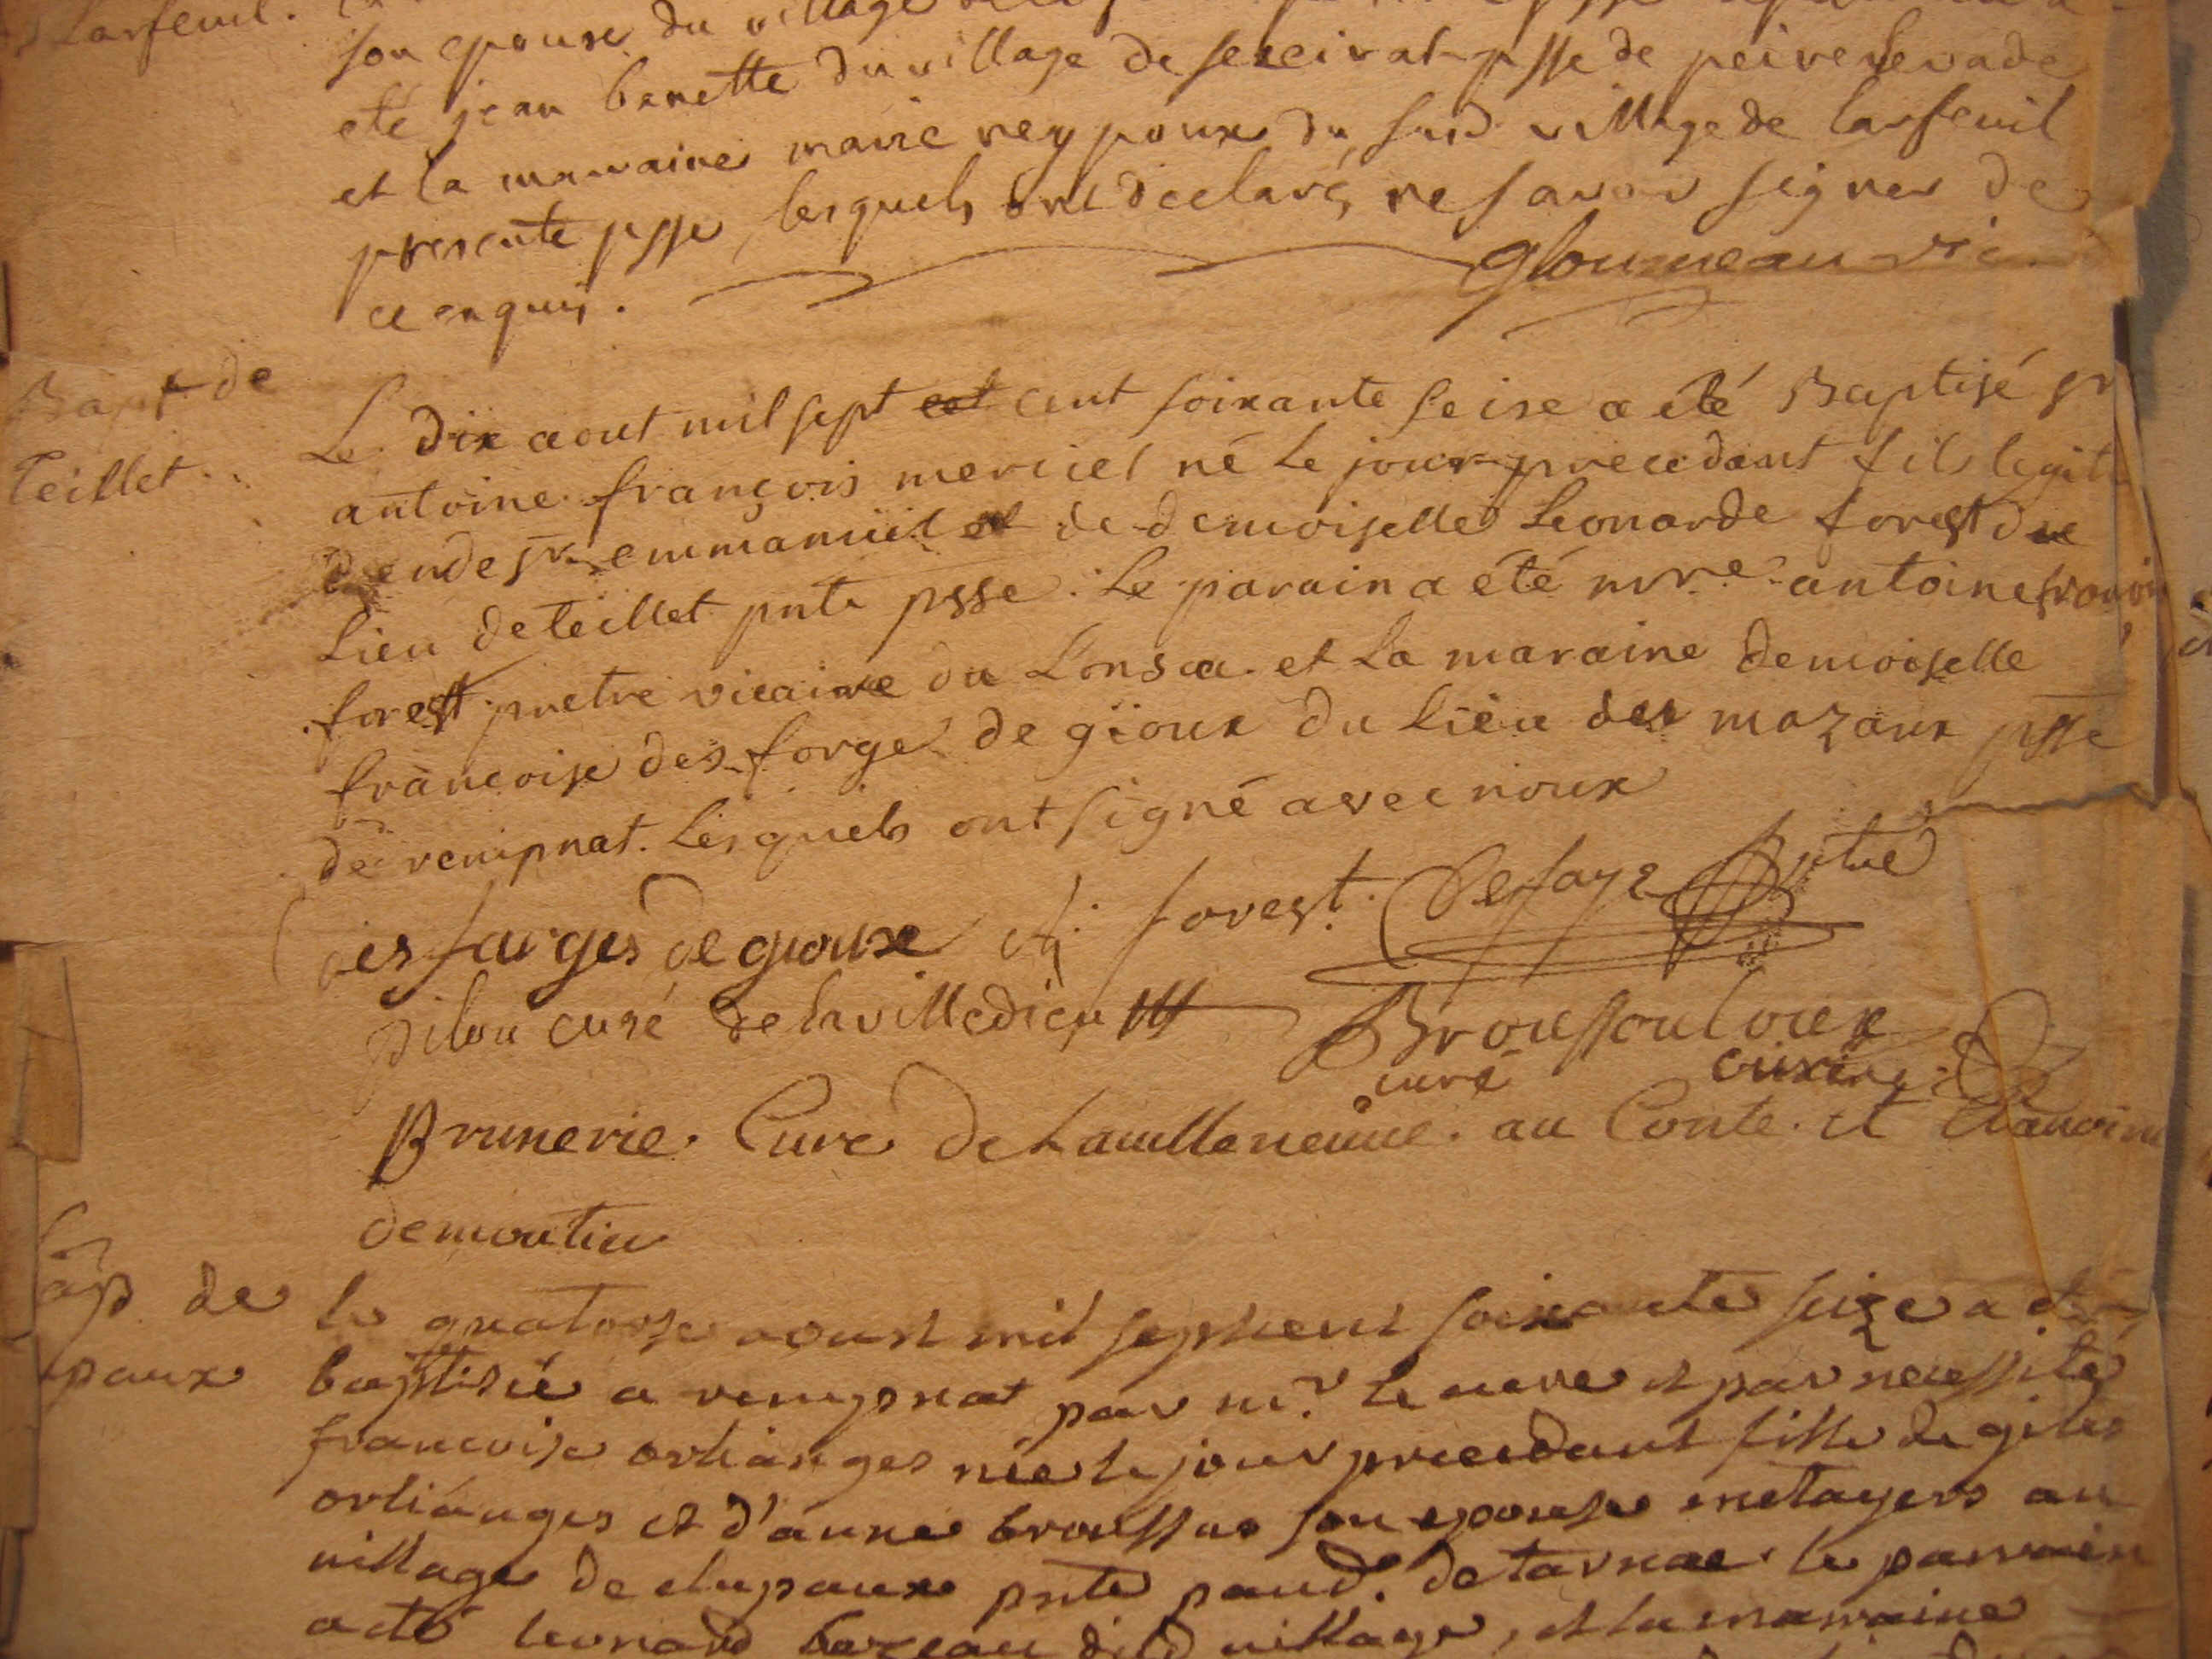 Larfeuil.
son epouse du village
eté jean banette du village de sereirat psse de peirelevade
et la marraine marie reypoux du susd village de larfeuil
presente psse, lesquels ont declaré ne savoir signer de
ce enquis. Gloumeau vic
Bapt de
Teillet
Le dix aout mil sept cent soixante seise a été Baptisé
antoine françois merciel né le jour precedant fils legit
de sr emmanuel et de demoiselle Leonarde forest du
lieu de Teillet pnte psse. Le parain a été mre antoine francois
forest pretre vicaire du Lonsac et La maraine demoiselle
françoise des forge de gioux du lieu des mazaux psse
de rempnat. Lesquels ont signé avec noux
des farges de gioux A. forest. Defaye ptre
Pilou curé de lavilledieu Broussouloux
curé
Brunerie. Curé de Lavilleneuve. au Conte. et Chanoine
demoutier
de
paux
le quatorse aoust mil septcent soixante seize a eté
baptisée a rempnat par mr le curé et par necessité
francoise orlianges née le jour precedant fille de giles
orlianges et d'anne broussas son epouse metayers au
village de chupaux pnte paud. de tarnac. le parrain
a eté leonard bazeau dud village, et la marraine